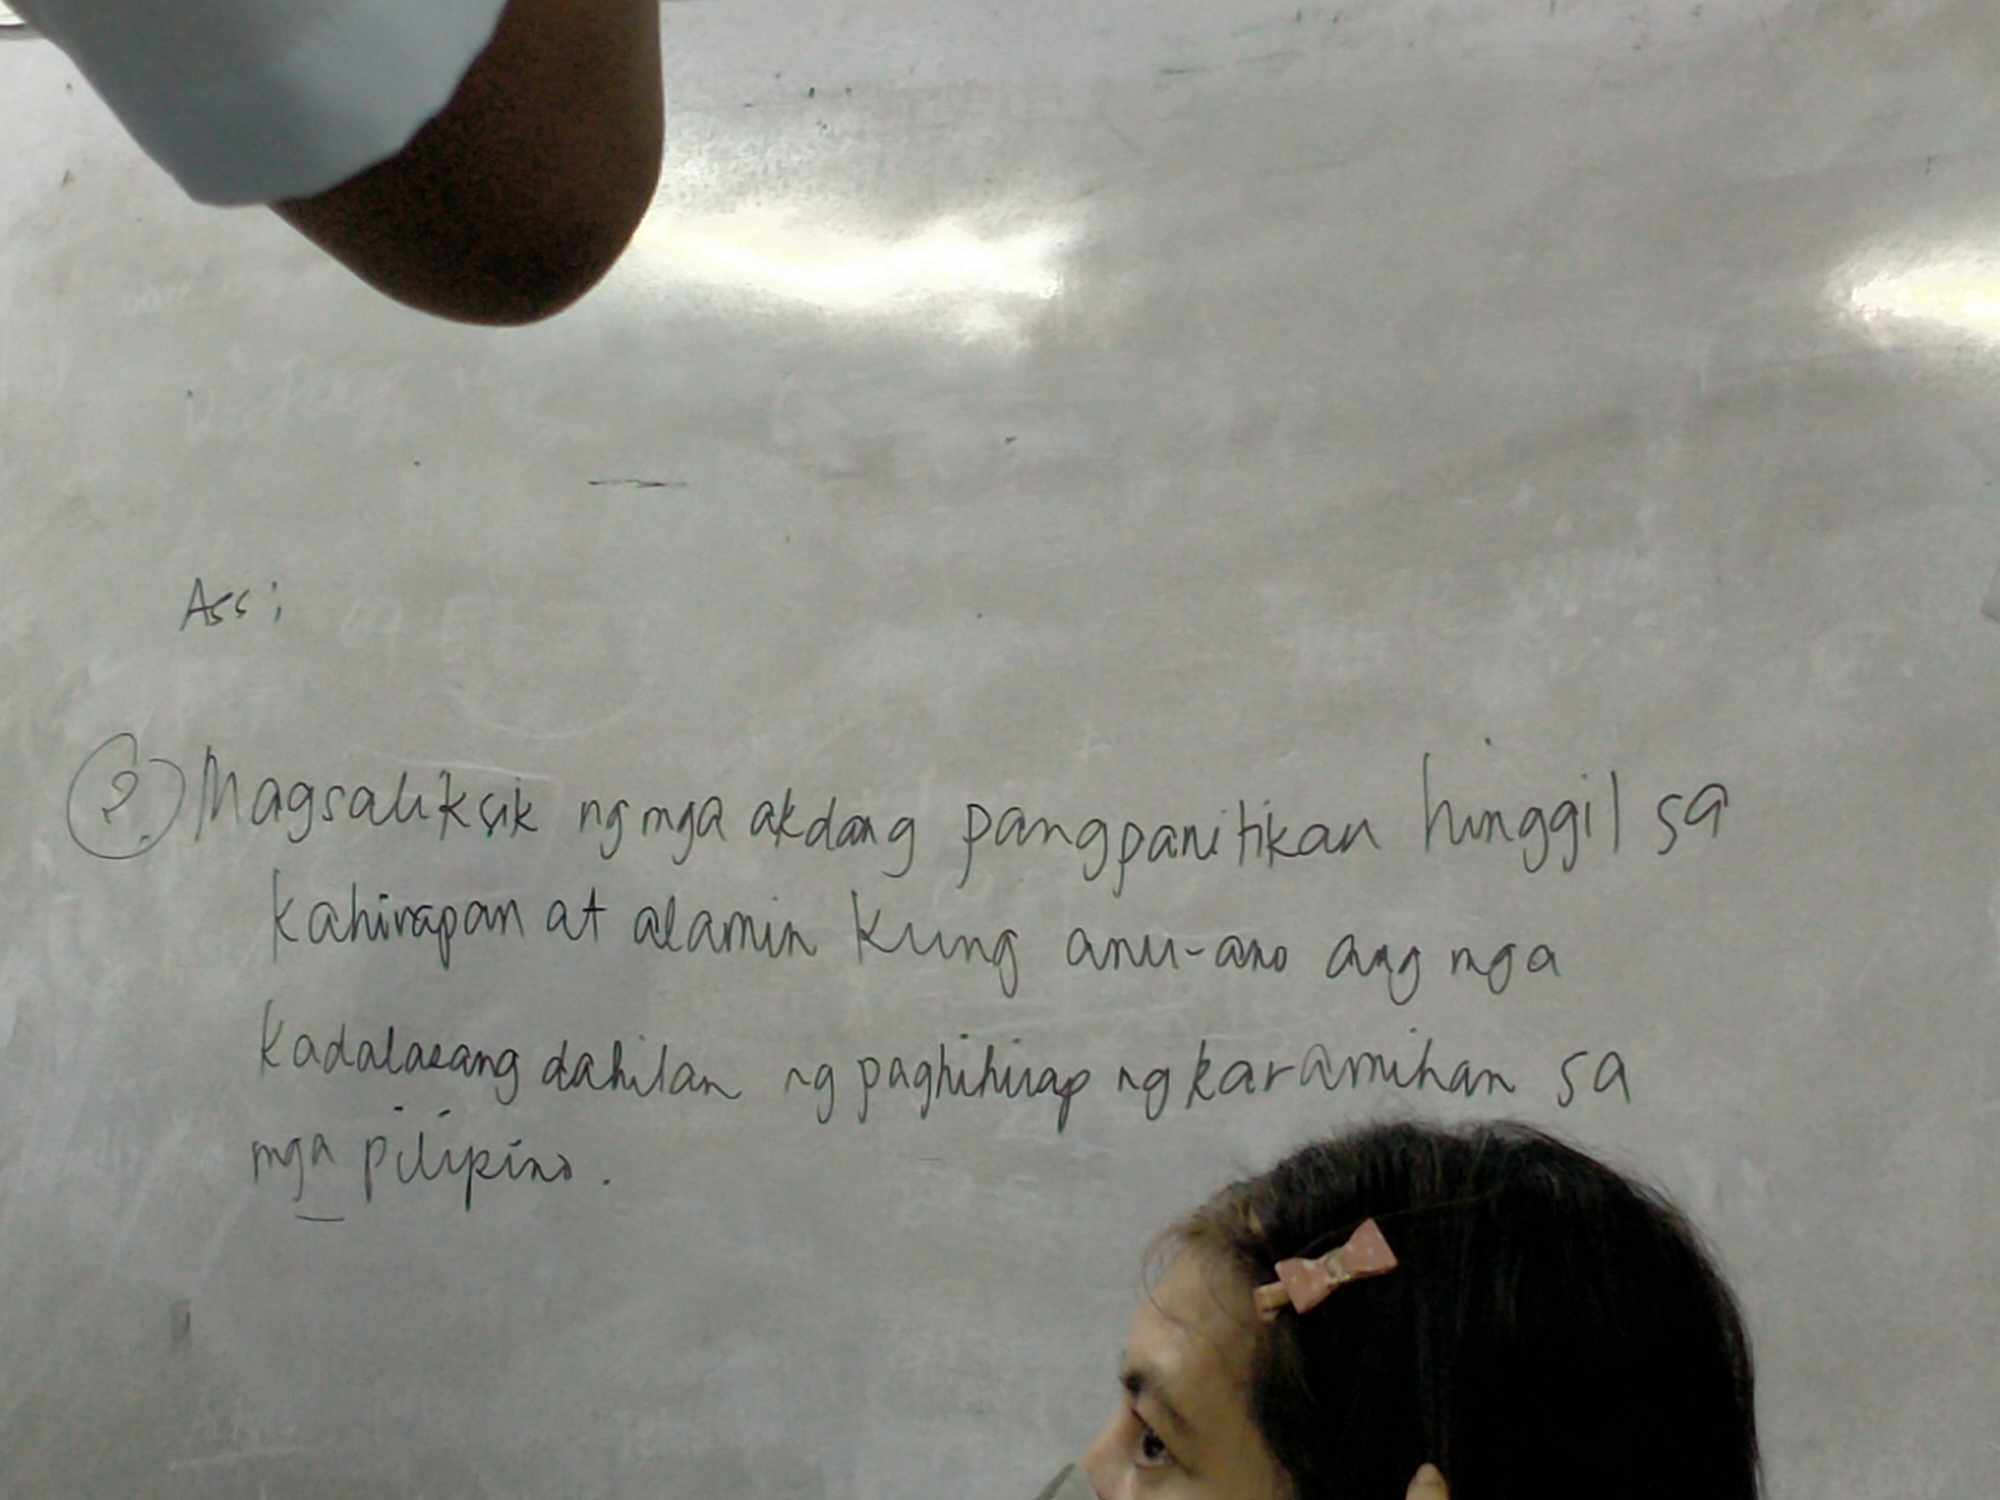 Ass:
2. Magsaliksik ng mga akdang pangpanitikan hinggil sa
kahirapan at alamin kung anu-ano ang mga
kadalasang dahilan ng paghihirap ng karamihan sa
mga pilipino.